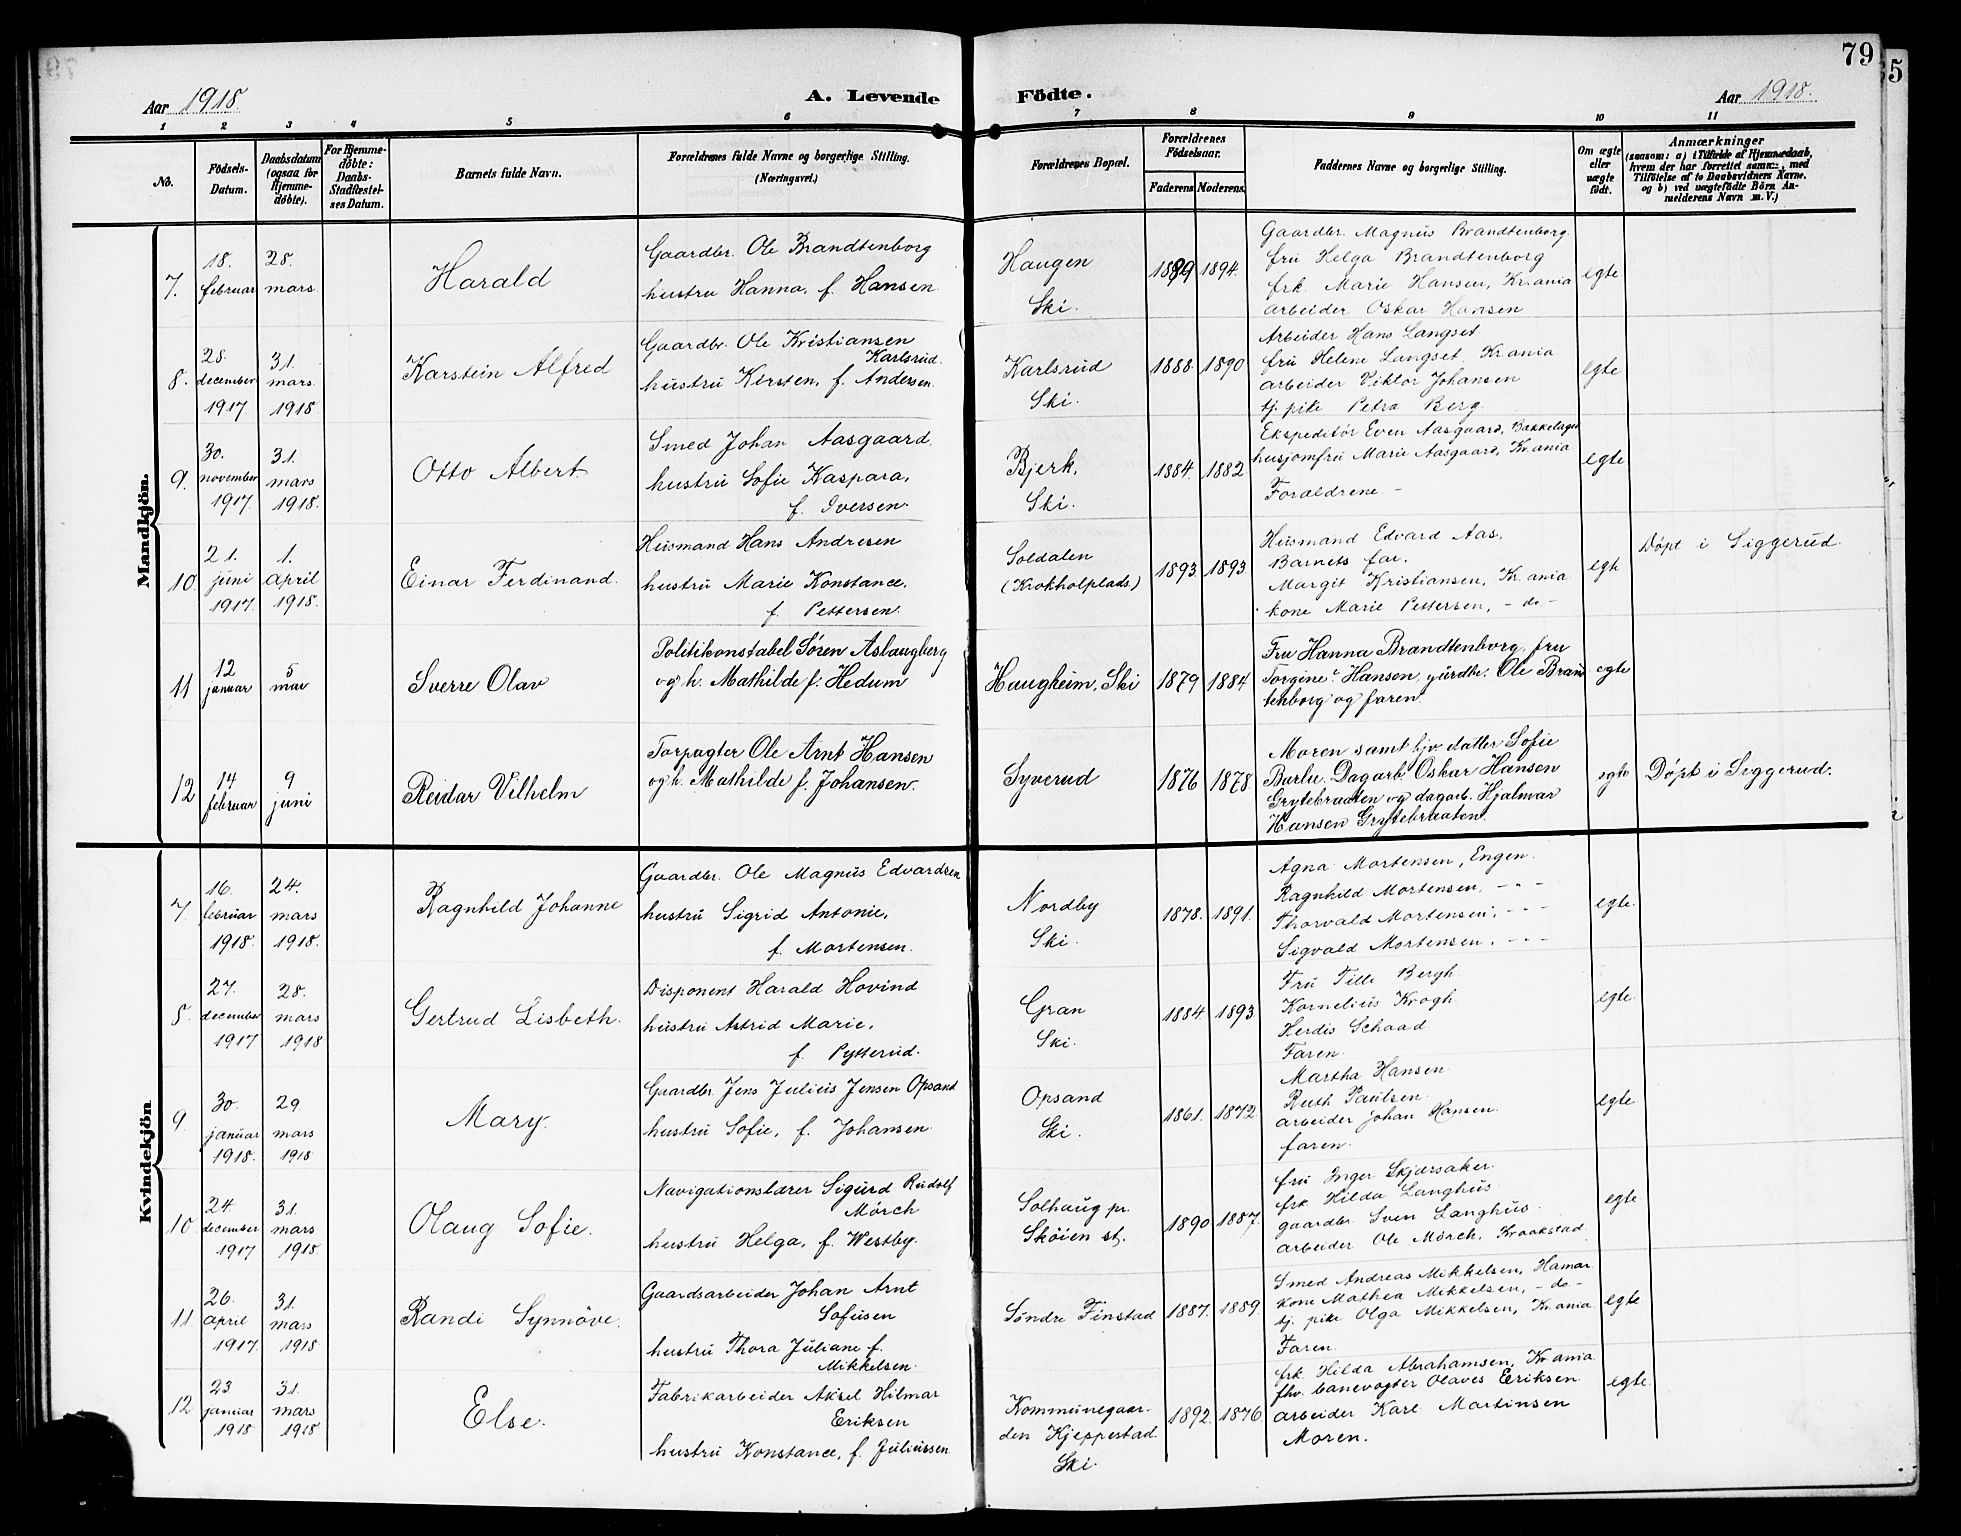 79
55
Aar 1918.
A. Levende Födte.
Aar 1918.
1 2 3 4 5 6 7 8 9 10 11
No.
Födsels-
Datum.
Daabsdatum
(ogsaa for
Hjemme-
døbte).
For Hjemme-
døbte:
Daabs-
Stadfæstel-
ses Datum.
Barnets fulde Navn.
Forældrenes fulde Navne og borgerlige Stilling.
(Næringsvei.)
Forældrenes Bopæl.
Forældrenes
Födselsaar.
Faderens Moderens.
Faddernes Navne og borgerlige Stilling.
Om ægte
eller
uægte
født.
Anmærkninger
(saasom: a) i Tilfælde af Hjemmedaab,
hvem der har forrettet samme, med
Tilföielse af to Daabsvidners Navne.
og b) ved uægtefödte Börn An-
melderens Navn m. V.)
Mandkjön.
7.
18.
februar
28.
mars
Harald
Gaardbr. Ole Brandtenborg
hustru Hanna, f. Hansen
Haugen
Ski.
1889 1894.
Gaardbr. Magnus Brandtenborg.
fru Helga Brandtenborg
frk. Marie Hansen, Kr.ania
arbeider Oskar Hansen
egte
8.
28.
december
1917.
31.
mars
1918
Karstein Alfred
Gaardbr. Ole Kristiansen
Karlsrud.
hustru Kirsten, f. Andersen.
Karlsrud
Ski.
1888. 1890
Arbeider Hans Langset
fru Helene Langset, Kr.ania
arbeider Viktor Johansen
tj. pike Petra Berg.
egte
9.
30.
november
1917.
31.
mars
1918.
Otto Albert.
Smed Johan Aasgaard,
hustru Sofie Kaspara,
f. Iversen.
Bjerk,
Ski.
1884. 1882
Ekspeditör Even Aasgaard, Bækkelaget
husjomfru Marie Aasgaard, Kr.ania
Forældrene -
egte
10.
21.
juni
1917.
1.
april
1918.
Einar Ferdinand.
Husmand Hans Andresen
hustru Marie Konstance,
f. Pettersen.
Soldalen
(Krokholplads.)
1893. 1893
Husmand Edvard Aas,
Barnets far.
Margit Kristiansen, Kr.ania
kone Marie Pettersen, - do -
egte
Døpt i Siggerud.
11
12
januar
5
mai
Sverre Olav
Politikonstabel Søren Aslaugberg
og h. Mathilde f. Hedum
Haugheim, Ski
1879 1884
Fru Hanna Brandtenborg, fru
Torgine Hansen, gårdbr. Ole Brand
tenborg og faren.
egte
12
14
februar
9
juni
Reidar Vilhelm
Torpagter Ole Arnt Hansen
og h. Mathilde f. Johansen.
Syverud
1876 1878
Moren samt hjv. datter Sofie
Barlie. Dagarb. Oskar Hansen
Grytebraaten og dagarb. Hjalmar
Hansen Grytebraaten.
egte
Døpt i Siggerud.
Kvindekjön
7.
16.
februar
1918.
24.
mars
1918.
Ragnhild Johanne
Gaardbr. Ole Magnus Edvardsen
hustru Sigrid Antonie,
f. Mortensen.
Nordby
Ski.
1878. 1891.
Agna Mortensen, Engen.
Ragnhild Mortensen, - " -
Thorvald Mortensen, - " -
Sigvald Mortensen, - " -
egte.
8.
27.
december
1917
28.
mars
1918
Gertrud Lisbeth.
Disponent Harald Hovind
hustru Astrid Marie,
f. Pytterud.
Gran
Ski.
1884. 1893
Fru Tille Bergh
Kornelius Krogh
Herdis Schaad
Faren.
egte.
9.
30.
januar
1918.
29
mars
1918
Mary.
Gaardbr. Jens Julius Jensen Opsand
hustru Sofie, f. Johansen.
Opsand
Ski.
1861. 1872.
Martha Hansen
Ruth Paulsen.
arbeider Johan Hansen.
faren.
egte
10
24.
december
1917
31.
mars
1918.
Olaug Sofie.
Navigationslærer Sigurd Rudolf
Mörch
hustru Helga, f. Westby.
Solhaug pr.
Sköien st.
1890 1887.
fru Inger Skjærsaker.
frk Hilda Langhus
gaardbr. Sven Langhus.
arbeider Ole Mörch, Kraakstad.
egte
11.
26.
april
1917.
31.
mars
1918
Randi Synnöve.
Gaardsarbeider Johan Arnt
Sofusen
hustru Thora Juliane f.
Mikkelsen.
Søndre Finstad
1887. 1889.
Smed Andreas Mikkelsen, Hamar
kone Mathea Mikkelsen, - do -
tj. pike Olga Mikkelsen, Kr.ania
Faren.
egte
12
23
januar
1918
31.
mars
1918
Else.
Fabrikarbeider Aksel Hilmar
Eriksen
hustru Konstance, f. Juliussen
Kommunegaar-
den Kjeppestad.
Ski.
1892. 1876.
frk. Hilda Abrahamsen, Kr.ania.
fhv. banevogter Olaves Eriksen
arbeider Karl Martinsen
Moren.
egte.